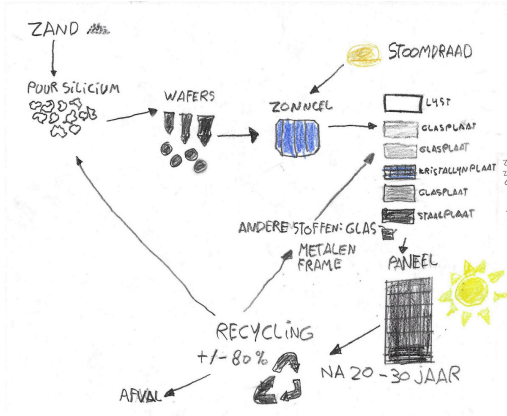 ZAND
STOOMDRAAD
POUR SILICIUM
WAFERS
ZONNCEL
LYST
GLASPLAAT
GLASPLAAT
KRISTALLYNPLAAT
GLASPLAAT
STAALPLAAT
ANDERE STOFFEN: GLAS
METALEN
FRAME
PANEEL
RECYCLING
+/- 80%
NA 20-30 JAAR
AFVAL